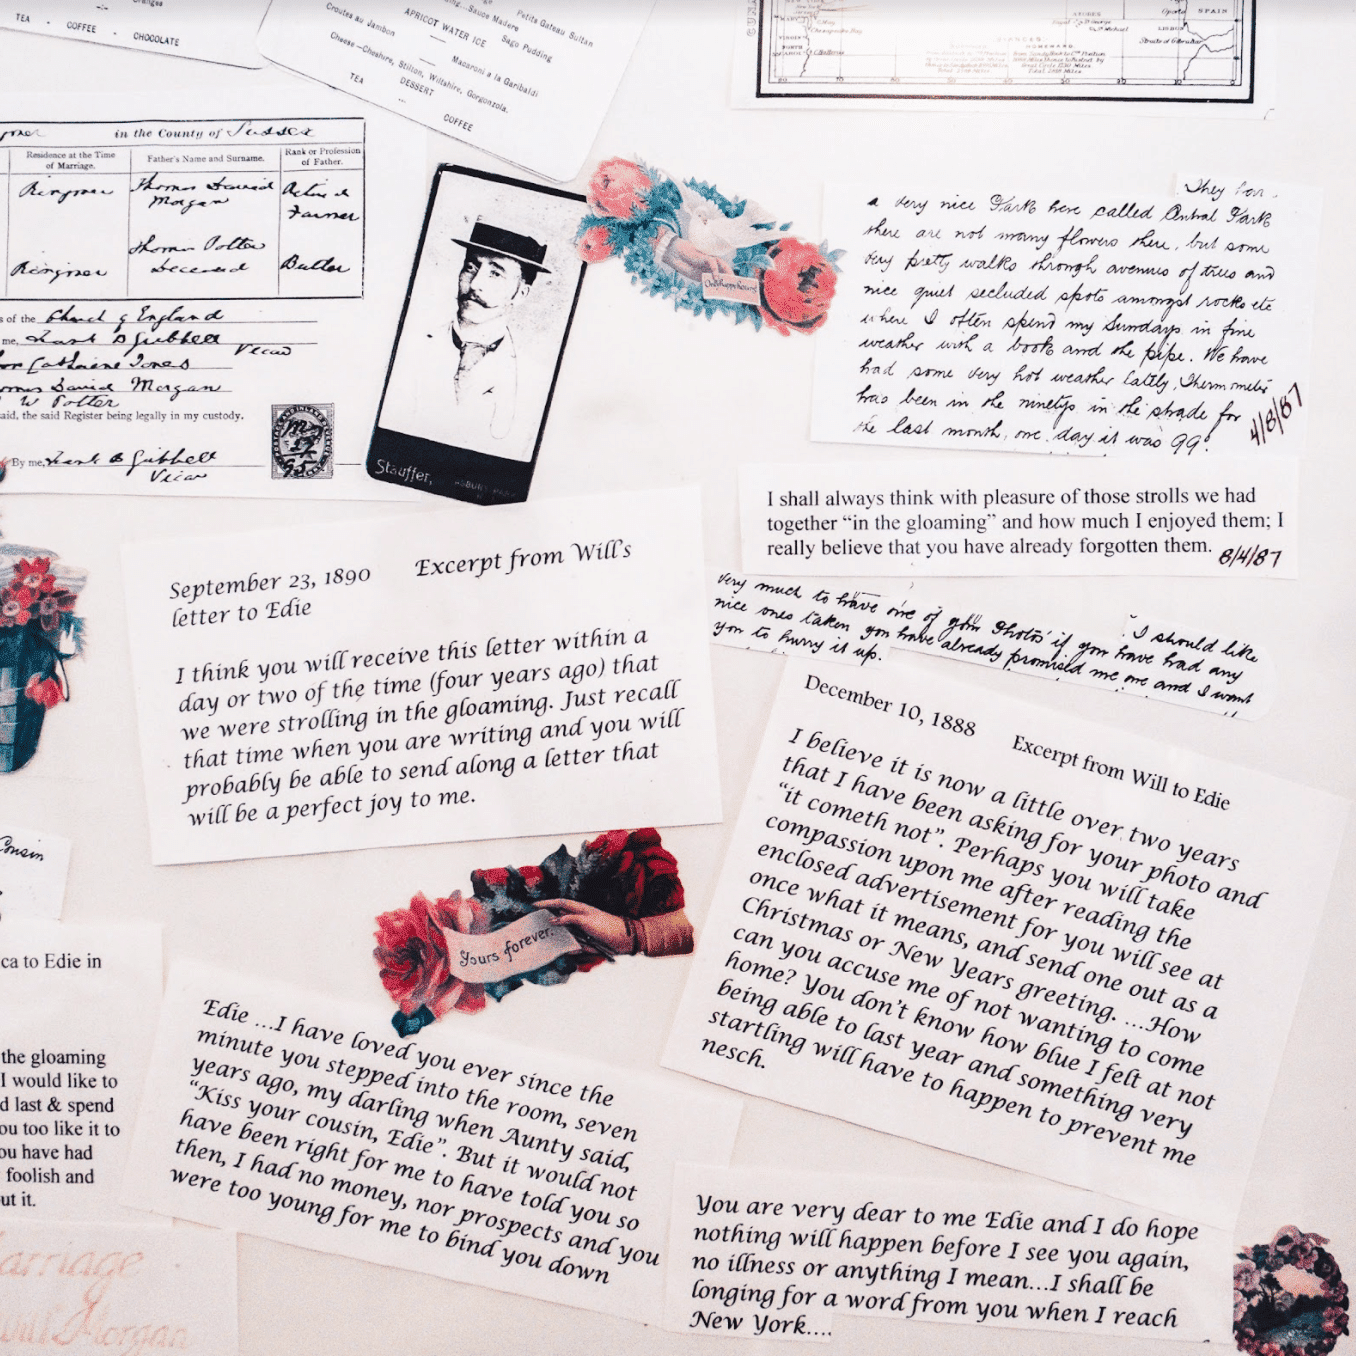 TEA - COFFEE - CHOCOLATE
Petits Gateau Sultan
Sauce Madere
Croutes au Jambon
APRICOT WATER ICE
Sago Pudding
Macaroni a la Garibaldi
Cheese—Cheshire, Stilton, Wiltshire, Gorgonzola.
TEA
DESSERT
COFFEE
SPAIN
in the County of Sussex
Residence at the Time
of Marriage.
Father's Name and Surname.
Rank or Profession
of Father.
Ringmer
Thomas David
Morgan
Farmer
Thomas Potter
Deceased
Ringmer
Butler
s of the Church of England
me,
Vicar
Catharine Jones
David Morgan
W Potter
aid, the said Register being legally in my custody.
By me,
Vicar
Stauffer,
Onst happy hours
They have
a very nice Park here called Central Park
there are not many flowers there, but some
very pretty walks through avenues of trees and
nice quiet secluded spots amongst rocks etc
where I often spend my Sundays in fine
weather with a book and the pipe. We have
had some very hot weather lately, Thermometer
has been in the ninetys in the shade for
the last month, one day it was 99!
4/8/87
I shall always think with pleasure of those strolls we had
together “in the gloaming” and how much I enjoyed them; I
really believe that you have already forgotten them.
8/4/87
I should like
very much to have one of your Photos' if you have had any
nice ones taken you have already promised me one and I want
you to hurry it up.
September 23, 1890
Excerpt from Will's
letter to Edie
I think you will receive this letter within a
day or two of the time (four years ago) that
we were strolling in the gloaming. Just recall
that time when you are writing and you will
probably be able to send along a letter that
will be a perfect joy to me.
December 10, 1888
Excerpt from Will to Edie
I believe it is now a little over two years
that I have been asking for your photo and
“it cometh not”. Perhaps you will take
compassion upon me after reading the
enclosed advertisement for you will see at
once what it means, and send one out as a
Christmas or New Years greeting. ...How
can you accuse me of not wanting to come
home? You don't know how blue I felt at not
being able to last year and something very
startling will have to happen to prevent me
nesch.
Yours forever.
Cousin
ca to Edie in
the gloaming
I would like to
d last & spend
ou too like it to
ou have had
foolish and
ut it.
Edie ...I have loved you ever since the
minute you stepped into the room, seven
years ago, my darling when Aunty said,
“Kiss your cousin, Edie”. But it would not
have been right for me to have told you so
then, I had no money, nor prospects and you
were too young for me to bind you down
You are very dear to me Edie and I do hope
nothing will happen before I see you again,
no illness or anything I mean...I shall be
longing for a word from you when I reach
New York....
arriage
Morgan